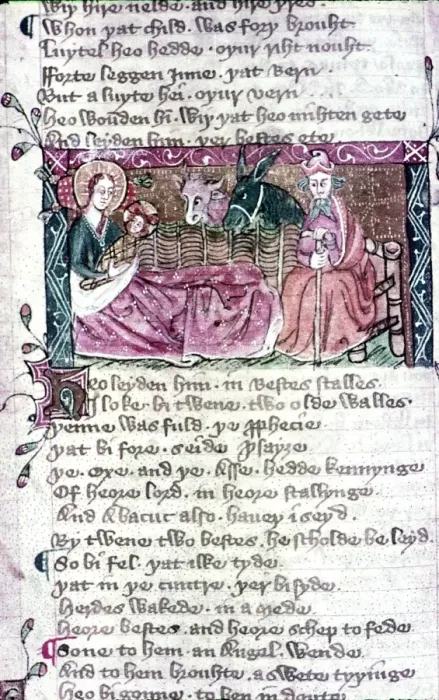 Wiþ hire nelde · and hire þred ·
Whon þat child · was forþ brouht ·
Luytel heo hedde · oþur riht nouht ·
fforte leggen Inne · þat bern ·
But a luyte hei · oþur vern
heo wouden hit · wiþ þat heo mihten gete
And leyden him · þer bestes ete
Heo leyden him · in Bestes stalles
I loke · bi twene · two olde walles ·
þenne was fuld · þe pphecie ·
þat bi fore · seide ysayȝe
þe · oxe · and þe · Asse · hedde kennynge
Of heore lord · in heore stallynge
And Abacuc also · haueþ iseyd ·
By twene two bestes · he scholde be leyd ·
So bi fel · þat ilke tyde ·
þat in þe cuntre · þer bi syde
herdes wakede · in a mede
heore bestes · and heore schep to fede
Sone to hem · an Angel · wende
And to hem brouhte · a swete tyþinge
heo bigonne · to ben in doute